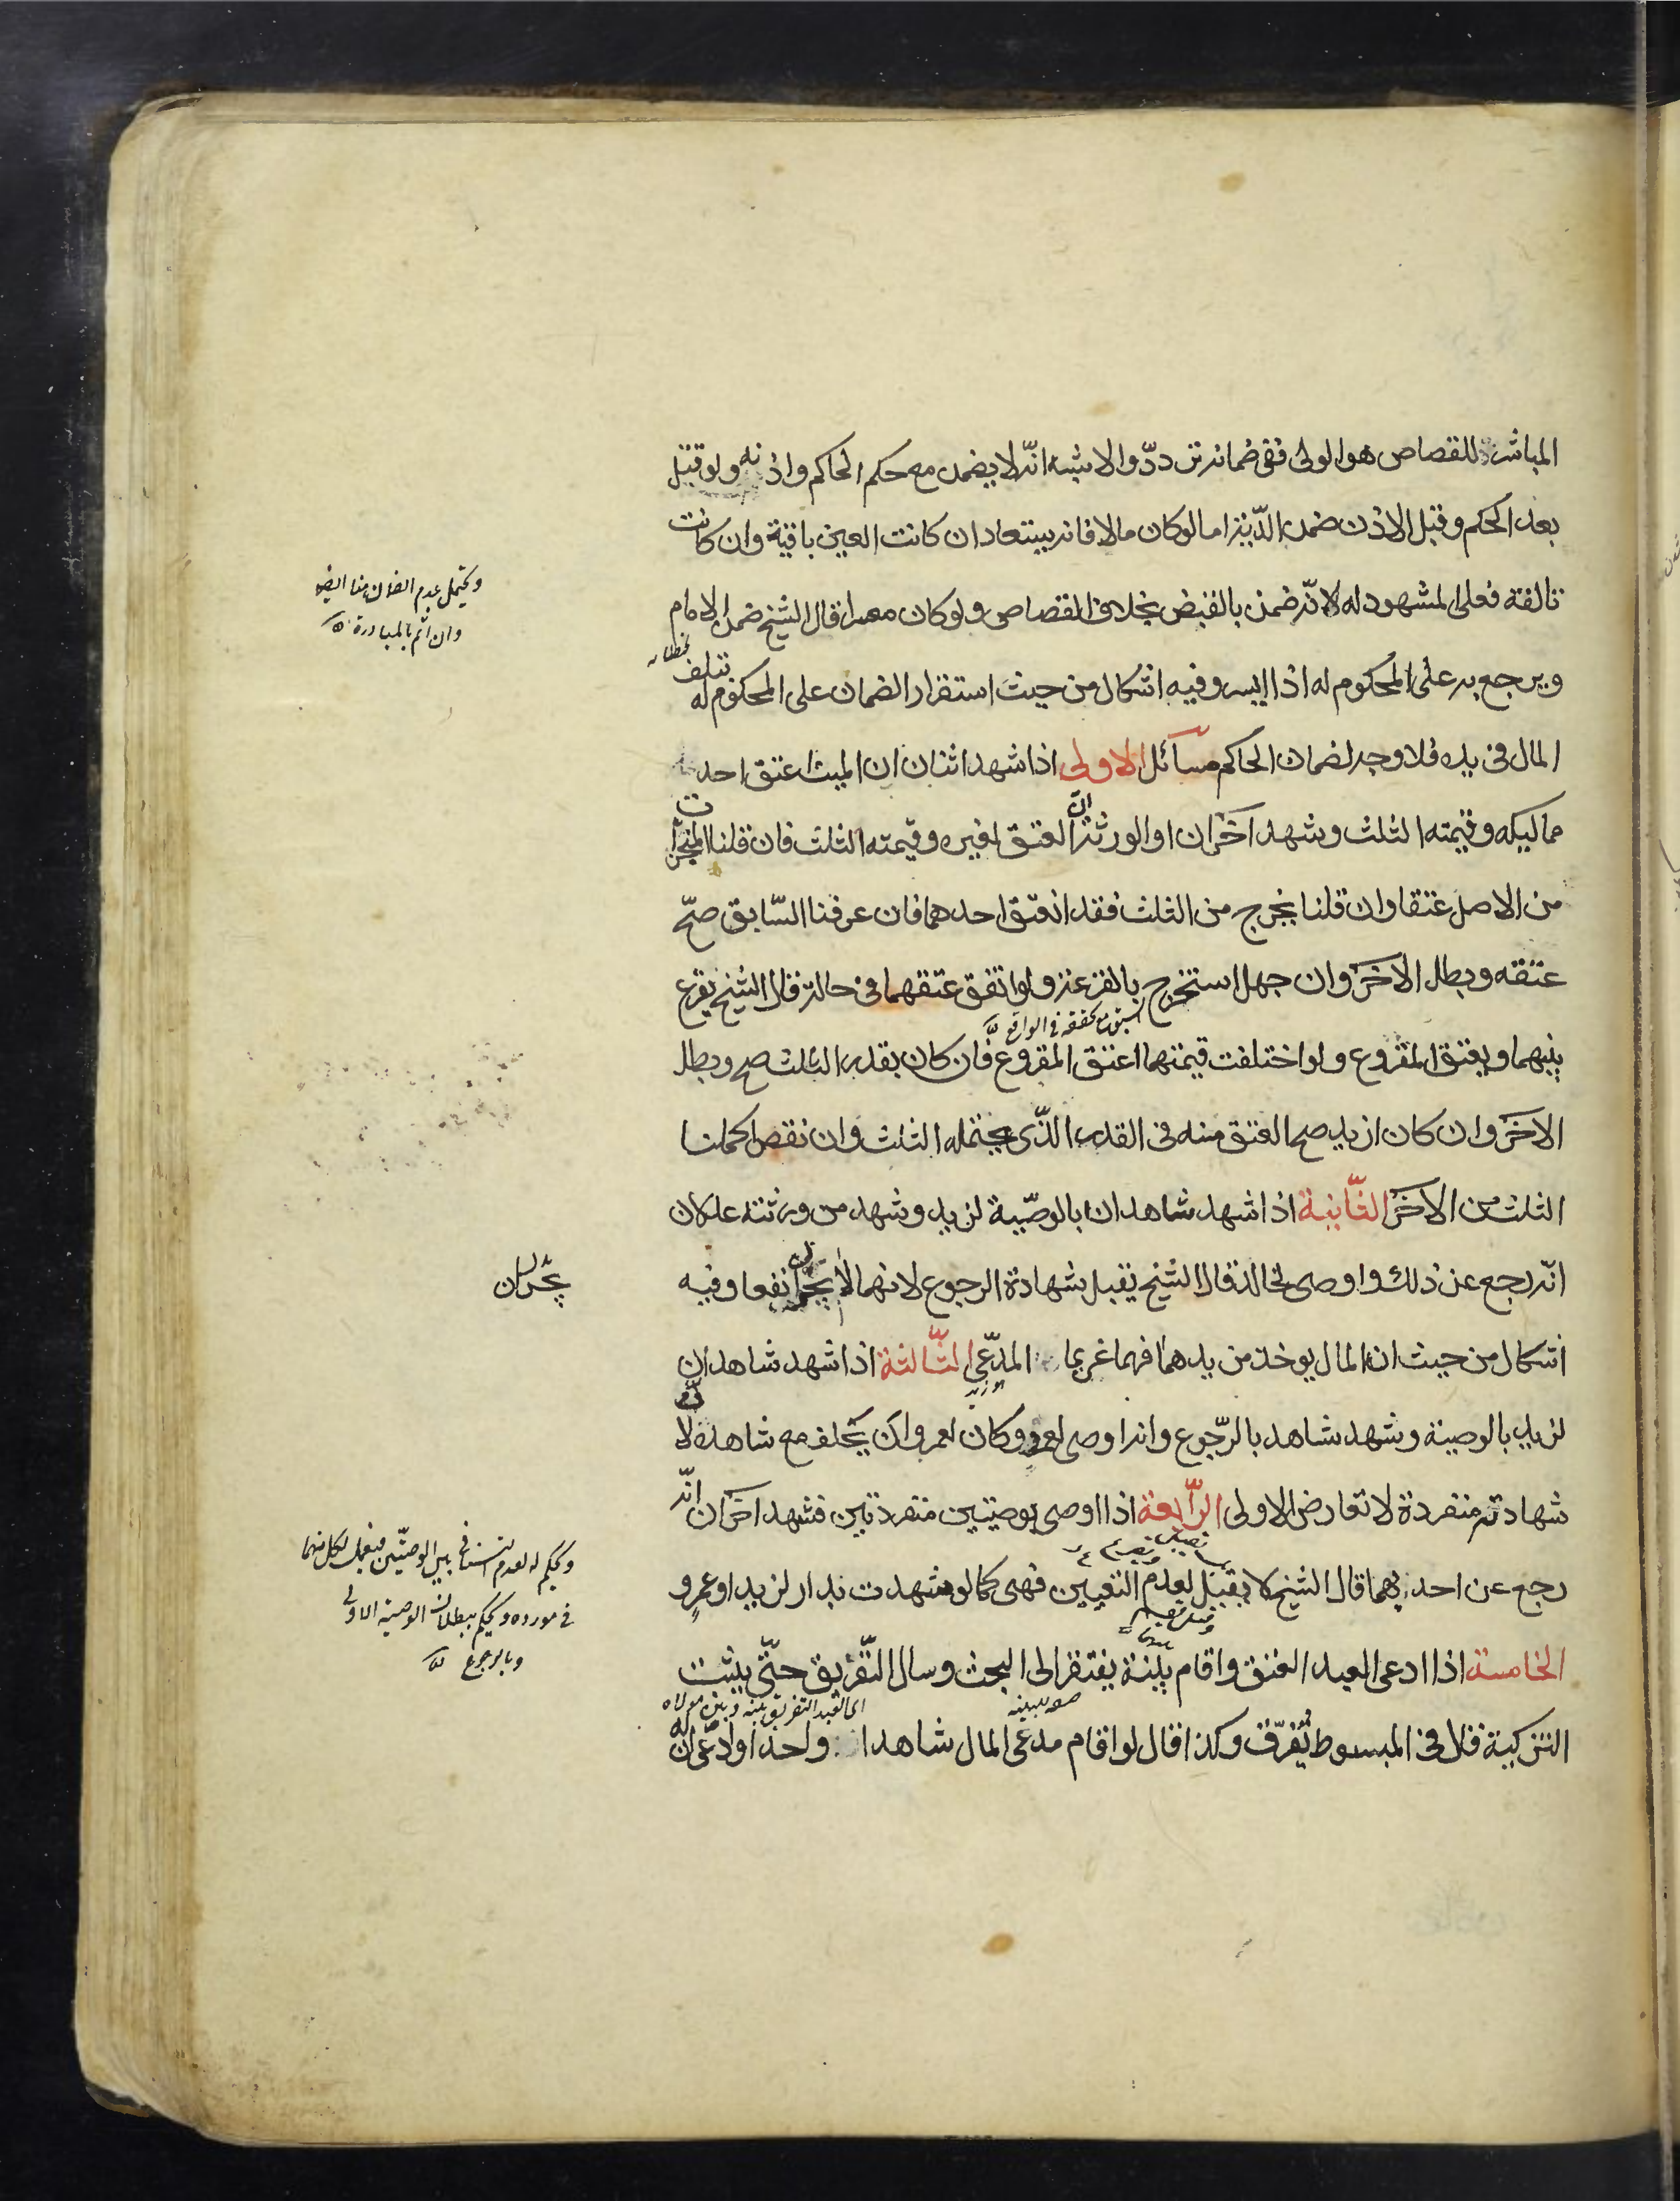 المباشرة للقصاص هو الولى ففى ضمانه تردّد والاشبه انّه لا يضمن مع حكم الحاكم واذنه ولو قتل
بعد الحكم وقبل الاذن ضمن الدّية اما لو كان مالا فانه يستعاد ان كانت العين باقية وان كانت
تالفة فعلى المشهود له لانّه ضمن بالقبض بخلاف القصاص ولو كان معسرا قال الشيخ ضمن الامام
ويرجع به على المحكوم له اذا ايسر وفيه اشكال من حيث استقرار الضمان على المحكوم له بتلف
المال فى يده فلا وجه لضمان الحاكم مسائل الاولى اذا شهد اثنان ان الميت اعتق احد
مماليكه وقيمته الثلث وشهد اخران او الورثة انّ العتق لغيره وقيمته الثلث فان قلنا المنجزات
من الاصل عتقا وان قلنا يخرج من الثلث فقد انعتق احدهما فان عرفنا السّابق صحّ
عتقه وبطل الاخر وان جهل استخرج بالقرعة ولو اتفق عتقهما فى حالة قال الشيخ يقرع
بينهما ويعتق المقروع ولو اختلفت قيمتهما اعتق المقروع فان كان بقدر الثلث صح وبطل
الاخر وان كان ازيد صح العتق منه فى القدر الذّى يحتمله الثلث وان نقص اكملنا
الثلث من الاخر الثّانية اذا شهد شاهدان بالوصّية لزيد وشهد من ورثته عدلان
انّه رجع عن ذلك واوصى لخالد قال الشيخ تقبل شهادة الرجوع لانهما لا يجران نفعا وفيه
اشكال من حيث ان المال يوخذ من يدهما فهما غريما المدّعى الثّالثة اذا شهد شاهدان
لزيد بالوصية وشهد شاهد بالرّجوع وانه اوصى لعمرو كان لعمرو ان يحلف مع شاهده لانّ
شهادته منفردة لا تعارض الاولى الرّابعة اذا اوصى بوصيتين منفردتين فشهد اخران انّه
رجع عن احديهما قال الشيخ لا يقبل لعدم التعيين فهى كما لو شهدت بدار لزيد او عمرو
الخامسة اذا ادعى العبد العتق واقام بينة يفتقر الى البحث وسال التّفريق حتّى يثبت
التزكية قال فى المبسوط يُفرّق وكذا قال لو اقام مدعى المال شاهدا واحدا وادّعى انّ له
ويحتمل عدم الضمان هنا ايضا
وان اثم بالمبادرة
يجران
ويحكم له لعدم التنافى بين الوصيّتين فيعمل لكل منهما
فى مورده ويحكم ببطلان الوصية الاولى
وبالرجوع